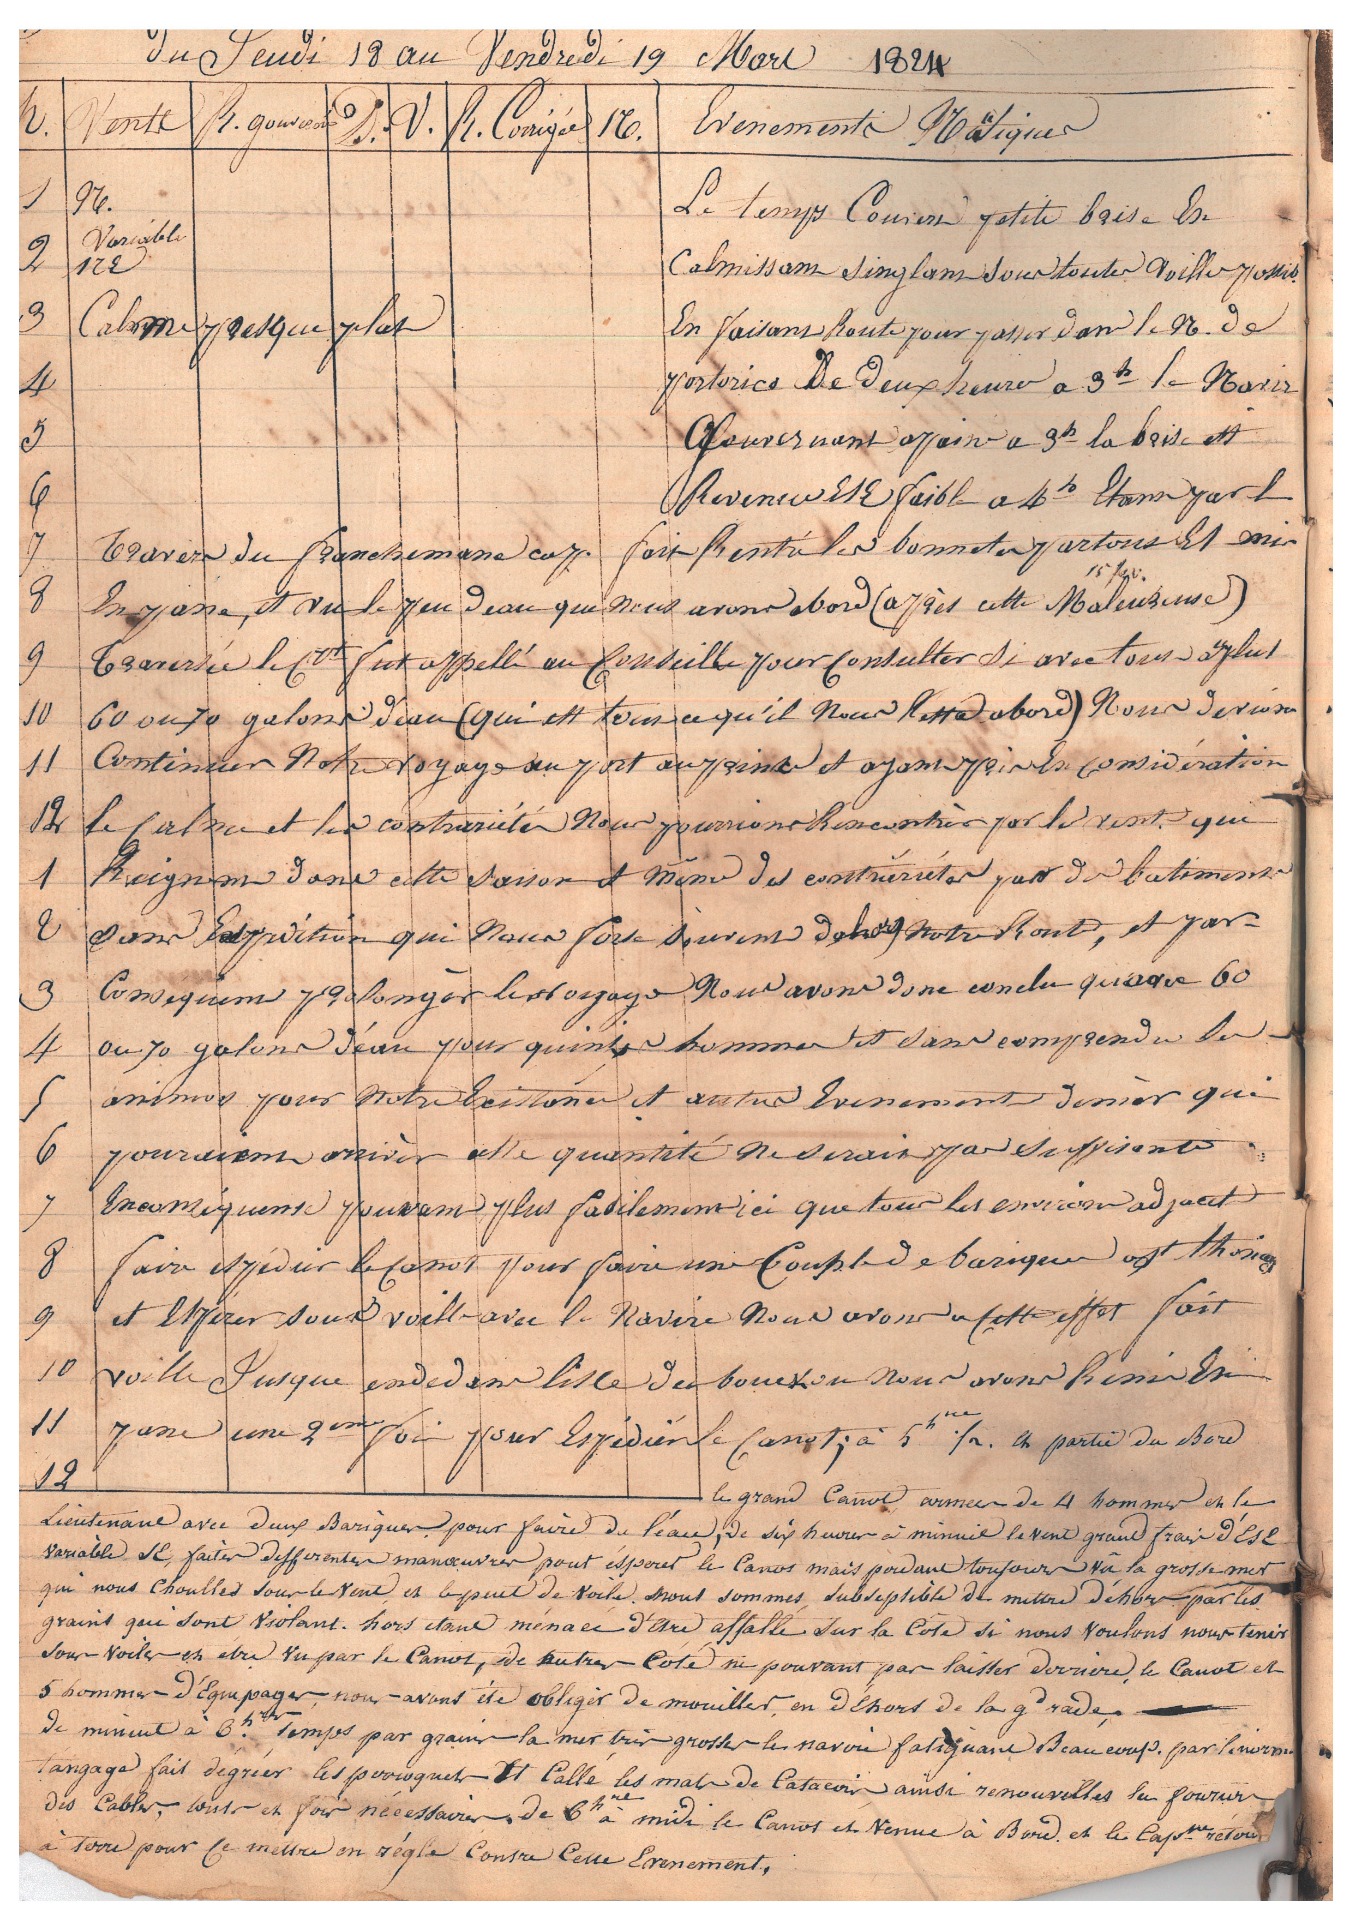 du Jeudi 18 au Vendredi 19 Mars 1824
h. Vents R. gouverné D. V. R. Corrigée N. Evenements Nätiques
1 N. Le temps Couvert petite brise En
2 Variable NE Calmissant singlant sous toutes Voilles possib.
3 Calme presque plat En faisant Route pour passer dans le N. de
4 portorico De deux heures a 3h le Navir
5 Gouvernant a paine a 3h la brise est
6 Revenue ESE faible a 4h Etant par l
7 travers du franchemane cap. fait Rentré les bonnetes partous Et mis
15 fev.
8 En pane, et vu le peu deau que nous avons abord (après cette Maleureuse)
9 traversée le Cpt fut appellé au Conseille pour Consulter Si avec tous au plus
10 60 ou 70 galons d'eau (qui est tous ce qu'il Nous Reste abord) Nous devions
11 Continuer Notre voyage au port au prince et ayant pris En Considération
12 le Calme et les contrariétés Nous pourrions Rencontrér par les vent. qui
1 Reignent dans cette saison et même des contrériétés par des batiments
2 dans Expédition qui Nous forse souvent dehors Notre Route, et par
3 Conséquent prolongér les voyage Nous avons donc conclu qu'avec 60
4 ou 70 galons d'éau pour quinze hommes et sans comprendre les
5 animos pour Notre Existance et autres Evenements dernier qui
6 pouraient arrivér cette quantité Ne serait pas suffisante
7 En conséquense pouvant plus facilement ici que tous les environs adjacet
8 faire expédier le Canot pour faire une Couple de bariques a st thomas
9 et Espérer sous voille avec le Navire Nous avons a cette effet fait
10 voille Jusque endedans lisle du bouc, ou nous avons Remis En
11 pane une 2eme fois pour Expédier le Canot; à 5 hre 1/2. Et partie du Bord
12 le grand Canot armée de 4 hommes et le
Lieutenant avec deux Bariques pour faire de l'éau, de six heures à minuit le vent grand frais d'ESE
Variable SE, faites differentes manœuvres pout ésperer le Canot mais perdant toujours vû la grosse mer
qui nous choulles sous le vent et le peut de voile. nous sommes subseptible de mettre déhors par les
grains qui sont violant. hors etant ménacé d'Etre affallé sur la Côte si nous voulons nous tenir
sous voiles et être vu par le Canot, de autres Coté ne pouvant pas laisser derriere le Canot et
5 hommes d'Equipages, nous avons été obliger de mouiller, en déhors de la gd rade,
de minuit à 6 hres temps par grains la mer très grosse le navire fatiguant Beaucoup. par l'énorme
tangage fait dégréer les perroquets Et Callé les mats de Catacois ainsi renouvelles les fourures
des Cables, tous et fois nécessaires, de 6 hre à midi le Canot et Venue à Bord. et le Capne rétour
à terre pour ce mettre en régle Contre Cette Evenement,